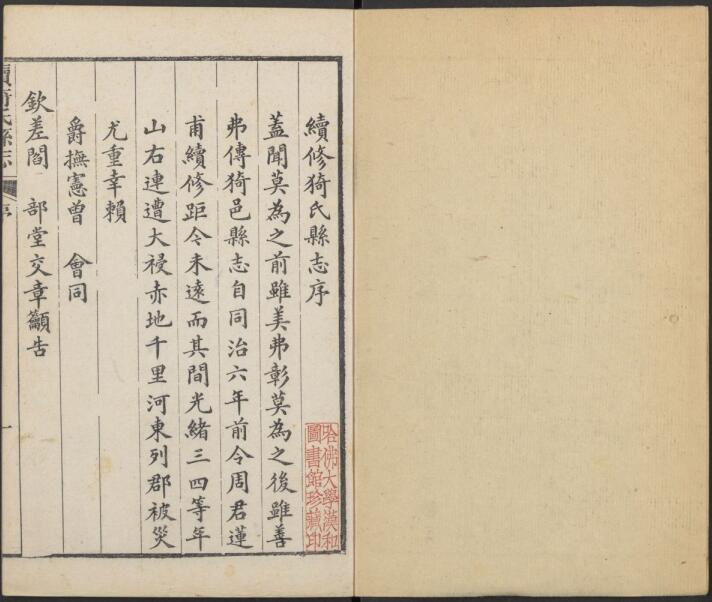 續修猗氏縣志序
蓋聞莫為之前雖美弗彰莫為之後雖善
弗傳猗邑縣志自同治六年前令周君蓮
甫續修距今未遠而其間光緒三四等年
山右連遭大祲赤地千里河東列郡被災
尤重幸賴
爵撫憲曾 會同
欽差閻 部堂交章籲告
續猗氏縣志
序
一
哈佛大學漢和
圖書館珍藏印